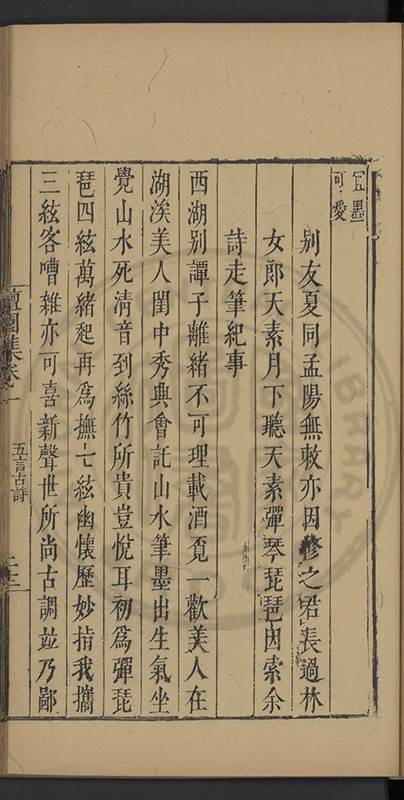 豆墨
可愛
別友夏同孟陽無敕亦因修之君長過林
女郎天素月下聽天素彈琴琵琶因索余
詩走筆紀事
西湖別譚子離緒不可理載酒覓一歡美人在
湖涘美人閨中秀典會託山水筆墨出生氣坐
覺山水死清音到絲竹所貴豈悅耳初為彈琵
琶四絃萬緒起再為撫七絃幽懷歷妙指我攜
三絃客嘈雜亦可喜新聲世所尚古調並乃鄙
集卷一
五言古詩